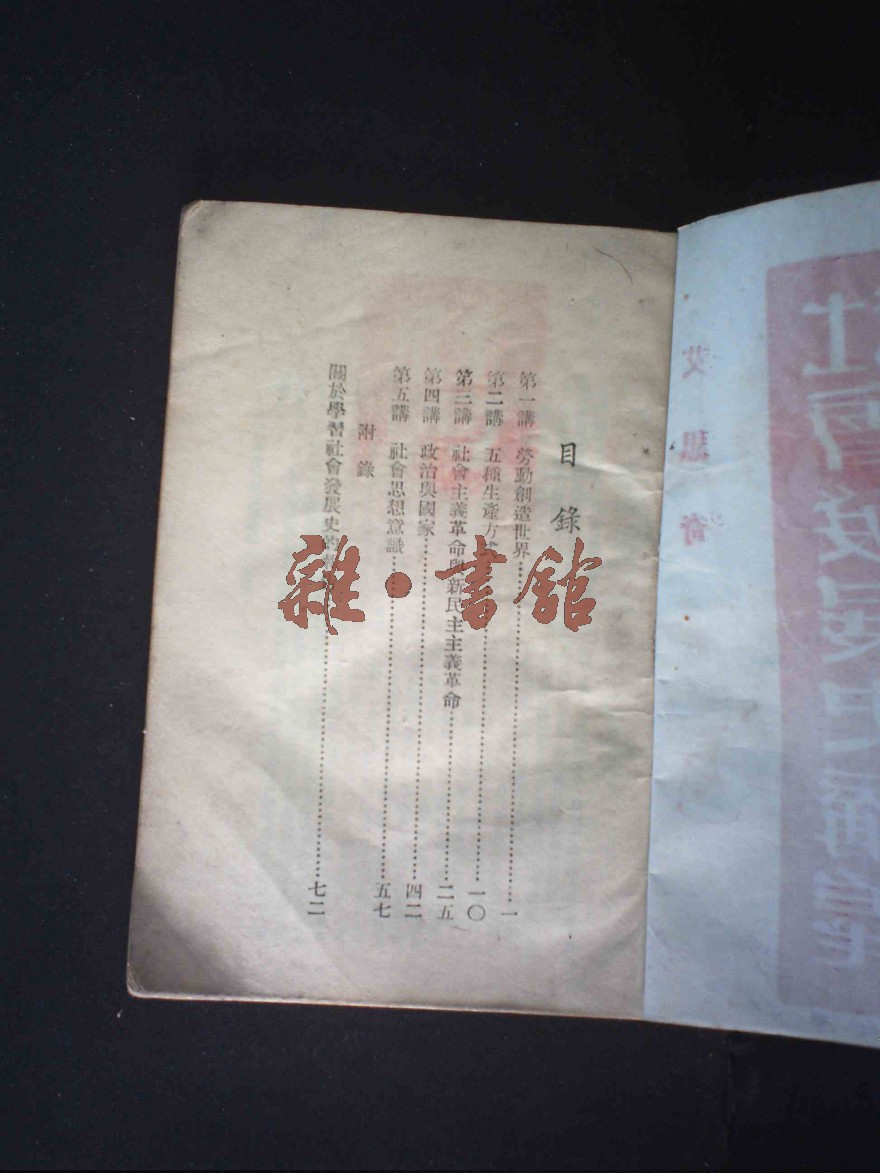 目錄
第一講 勞動創造世界……一
第二講 五種生產方式……一〇
第三講 社會主義革命與新民主主義革命……二五
第四講 政治與國家……四二
第五講 社會思想意識……五七
附錄
關於學習社會發展史的……七二
雜·書館
艾思奇
社會發展史講